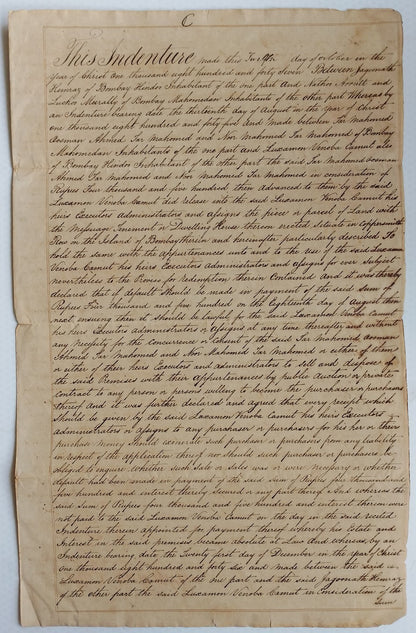 C
This Indenture made this Twelfth day of October in the
Year of Christ One thousand eight hundred and forty seven Between Jagonath
Hemraz of Bombay Hindoo Inhabitant of the one part and Nathoo and
Luckoo Muratly of Bombay Mahomedan Inhabitants of the other part Whereas by
an Indenture bearing date the thirteenth day of August in the Year of Christ
one thousand eight hundred and forty five and Made between Jar Mahomed
Oosman Ahmed Jar Mahomed and Nor Mahomed Jar Mahomed of Bombay
Mahomedan Inhabitants of the one part and Luxamon Venoba Camut also
of Bombay Hindoo Inhabitant of the other part the said Jar Mahomed Oosman
Ahmed Jar Mahomed and Nor Mahomed Jar Mahomed in consideration of
Rupees Four thousand and five hundred then advanced to them by the said
Luxamon Venoba Camut did release unto the said Luxamon Venoba Camut his
heirs Executors Administrators and assigns the piece or parcel of Land with
the Messuage Tenement or Dwelling House thereon erected situate in
Row in the Island of Bombay therein and hereinafter particularly described To
hold the same with the appurtenances unto and to the use of the said Luxamon
Venoba Camut his heirs Executors Administrators and assigns for ever Subject
nevertheless to the Proviso for redemption therein Contained And it was thereby
declared that if default should be made in payment of the said Sum of
Rupees Four thousand and five hundred on the Eighteenth day of August then
next ensuing then it should be lawful for the said Luxamon Venoba Camut
his heirs Executors administrators or assigns at any time thereafter and without
any Necessity for the concurrence or Consent of the said Jar Mahomed Oosman
Ahmed Jar Mahomed and Nor Mahomed Jar Mahomed or either of them
or either of their heirs Executors and administrators to sell and dispose of
the said Premises with their appurtenances by public auction or private
contract to any person or persons willing to become the purchaser or purchasers
thereof and it was further declared and agreed that every receipt which
should be given by the said Luxamon Venoba Camut his heirs Executors
administrators or assigns to any purchaser or purchasers for his her or their
purchase money should exonerate such purchaser or purchasers from any liability
in respect of the application thereof nor should such purchaser or purchasers be
obliged to enquire whether such Sale or Sales was or were Necessary or whether
default had been made in payment of the said sum of Rupees four thousand and
five hundred and interest thereby secured or any part thereof And whereas the
said Sum of Rupees four thousand and five hundred and interest thereon were
not paid to the said Luxamon Venoba Camut on the day in the said recited
Indenture thereon appointed for payment thereof whereby his Estate and
Interest in the said premises became absolute at Law and whereas by an
Indenture bearing date the Twenty first day of December in the Year of Christ
one thousand eight hundred and forty six and made between the said
Luxamon Venoba Camut of the one part and the said Jagonath Hemraz
of the other part the said Luxamon Venoba Camut in Consideration of the
Sum